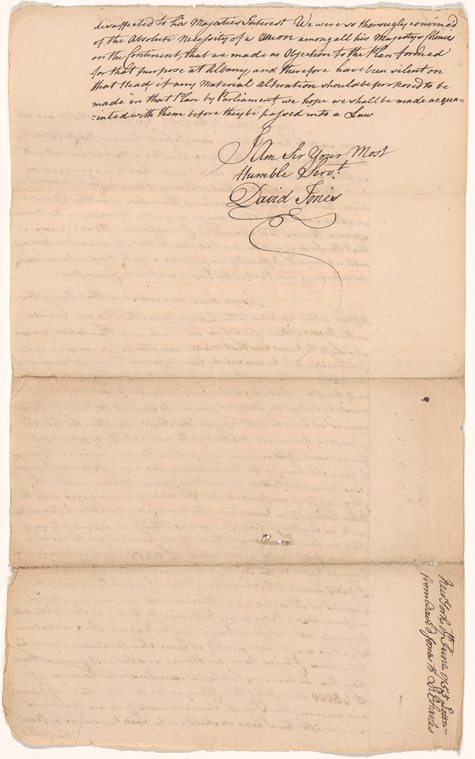 disaffected to his Majesties Interest We were so thoroughly convinced
of the Absolute Necessity of a Union among all his Majestys Colonies
on the Continent, that we made no Objection to the Plan formed
for that purpose at Albany, and therefore have been silent on
that Head if any Material Alteration should be proposed to be
made in that Plan by Parliament we hope we shall be made acqua-
-inted with them before they be passed into a Law
I Am Sir Your Most
Humble Serv.t
David Jones
New York June 1755 Letter
from David Jones to Charles